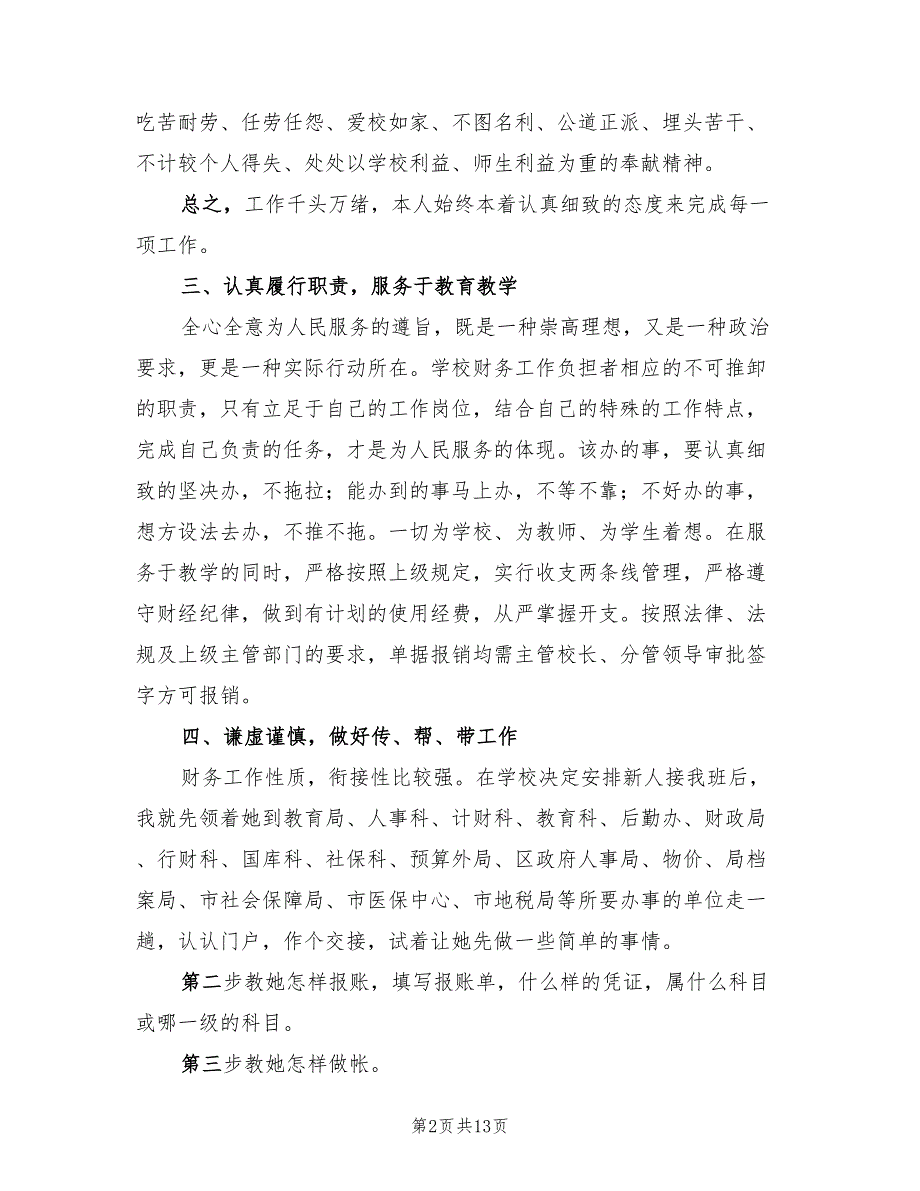 吃苦耐劳、任劳任怨、爱校如家、不图名利、公道正派、埋头苦干、
不计较个人得失、处处以学校利益、师生利益为重的奉献精神。
总之，工作千头万绪，本人始终本着认真细致的态度来完成每一
项工作。
三、认真履行职责，服务于教育教学
全心全意为人民服务的遵旨，既是一种崇高理想，又是一种政治
要求，更是一种实际行动所在。学校财务工作负担者相应的不可推卸
的职责，只有立足于自己的工作岗位，结合自己的特殊的工作特点，
完成自己负责的任务，才是为人民服务的体现。该办的事，要认真细
致的坚决办，不拖拉；能办到的事马上办，不等不靠；不好办的事，
想方设法去办，不推不拖。一切为学校、为教师、为学生着想。在服
务于教学的同时，严格按照上级规定，实行收支两条线管理，严格遵
守财经纪律，做到有计划的使用经费，从严掌握开支。按照法律、法
规及上级主管部门的要求，单据报销均需主管校长、分管领导审批签
字方可报销。
四、谦虚谨慎，做好传、帮、带工作
财务工作性质，衔接性比较强。在学校决定安排新人接我班后，
我就先领着她到教育局、人事科、计财科、教育科、后勤办、财政局
、行财科、国库科、社保科、预算外局、区政府人事局、物价、局档
案局、市社会保障局、市医保中心、市地税局等所要办事的单位走一
趟，认认门户，作个交接，试着让她先做一些简单的事情。
第二步教她怎样报账，填写报账单，什么样的凭证，属什么科目
或哪一级的科目。
第三步教她怎样做帐。
第2页共13页